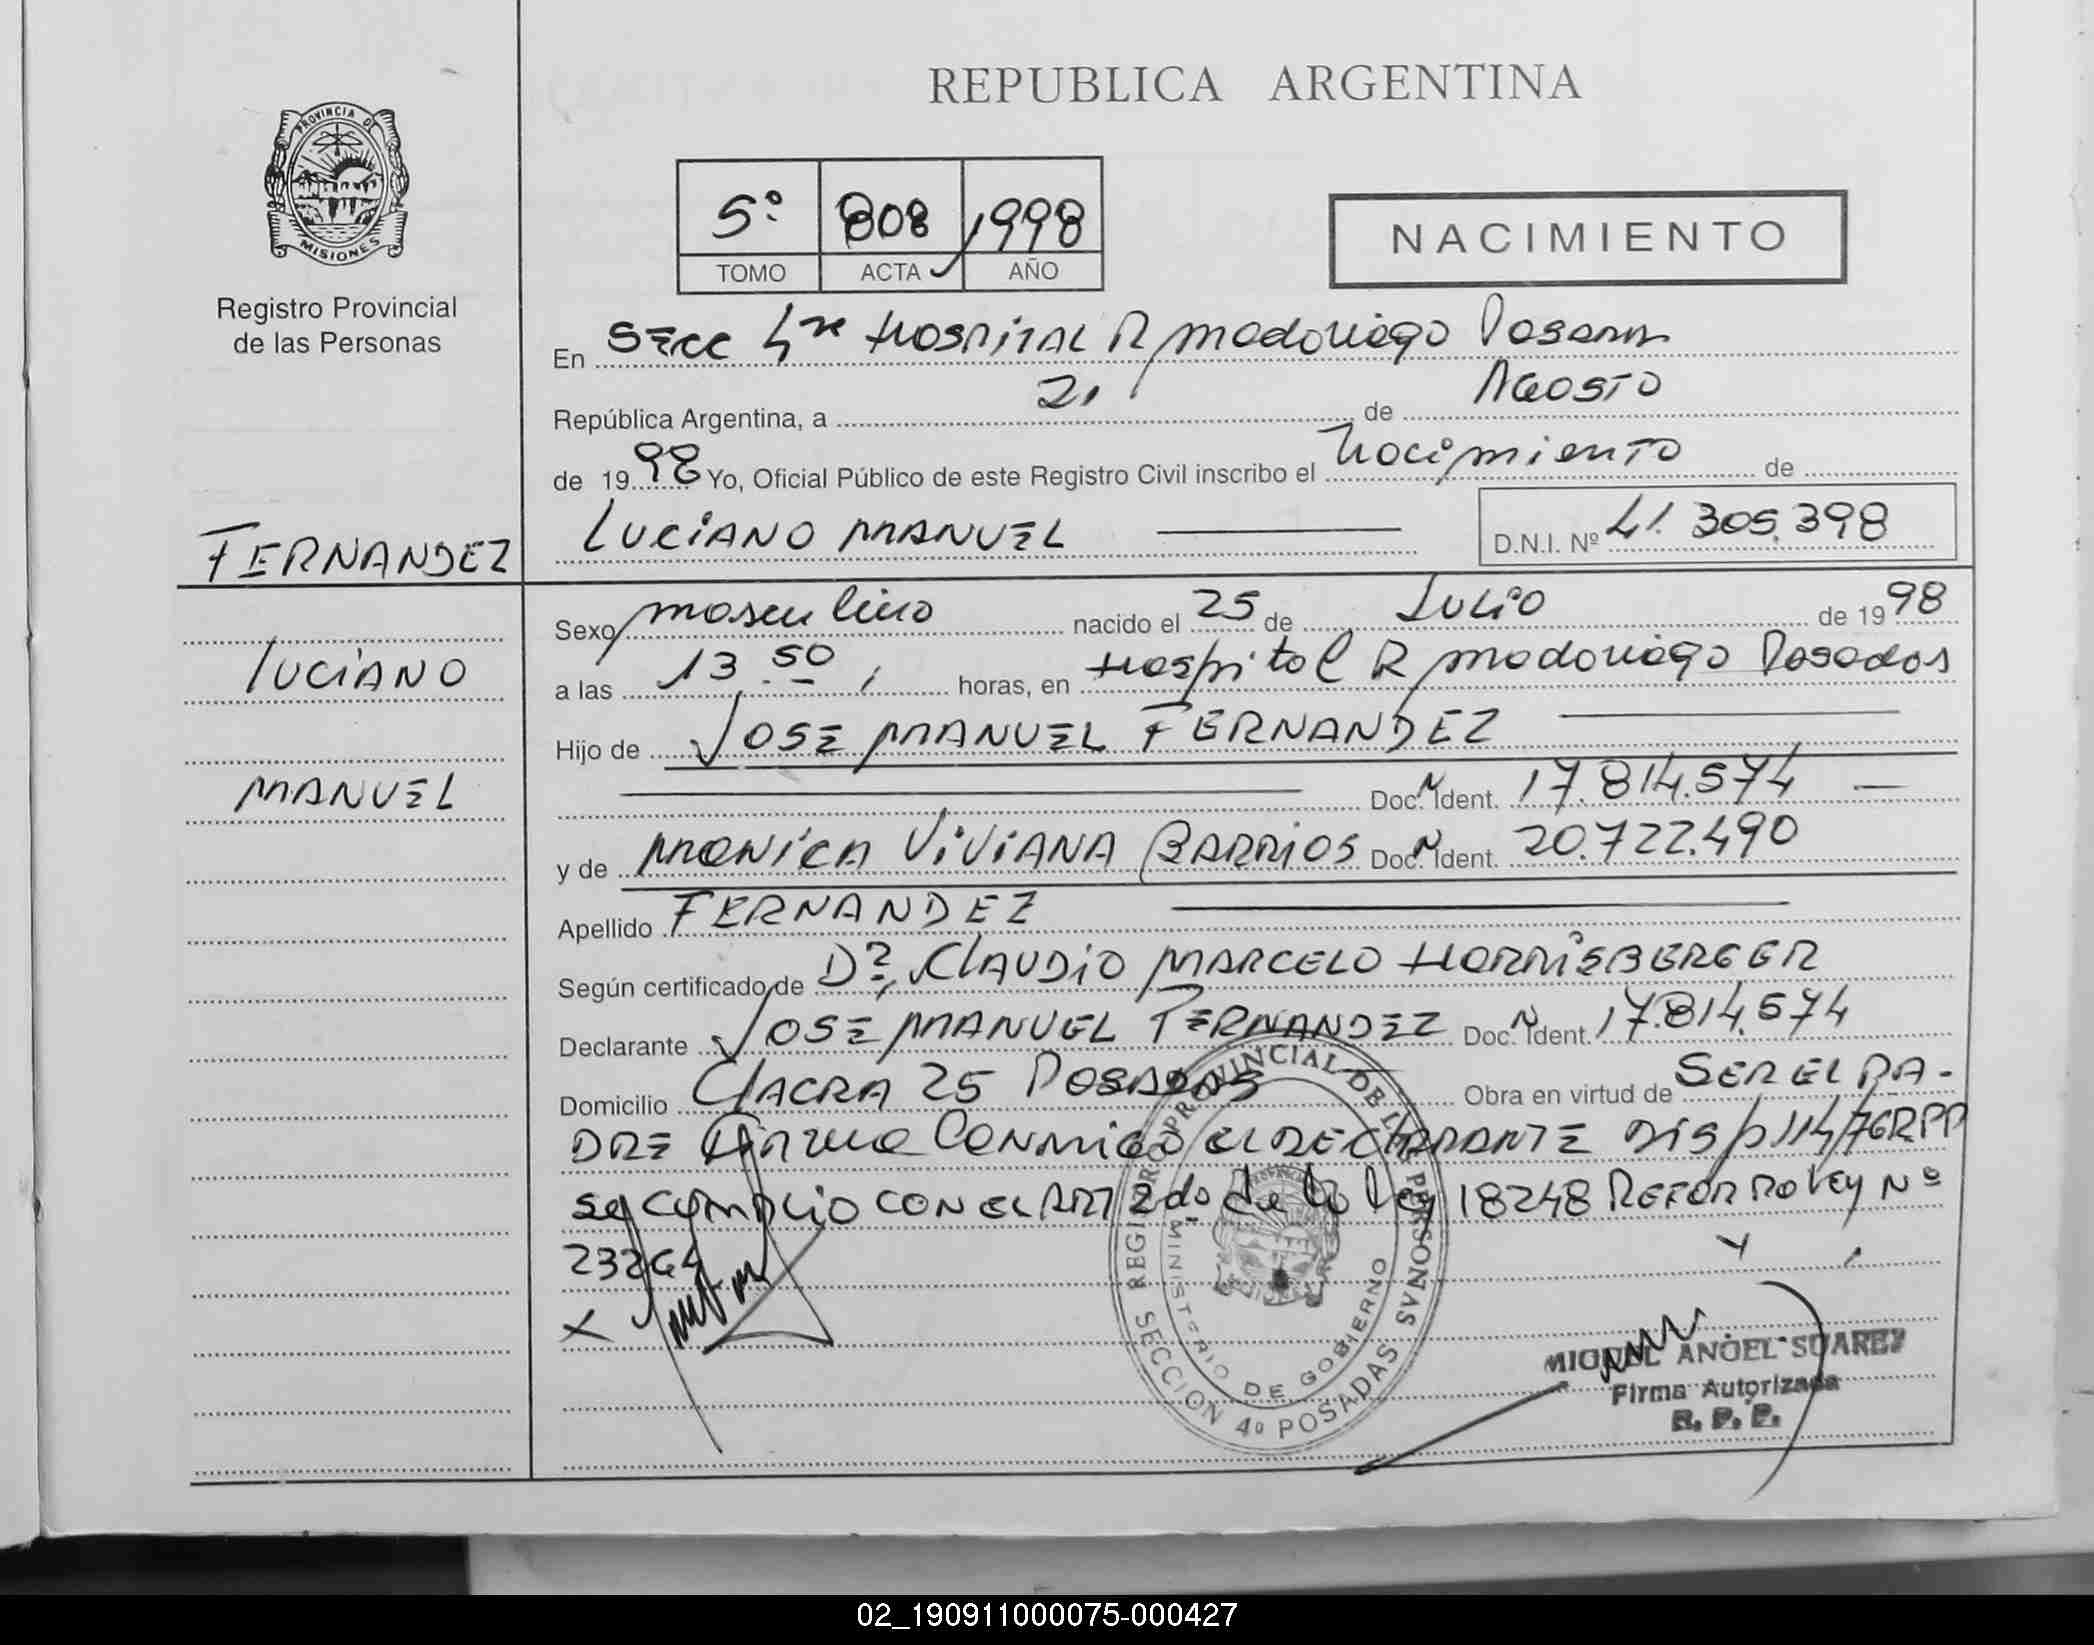 REPUBLICA ARGENTINA
PROVINCIA DE
MISIONES
Registro Provincial
de las Personas
5º 808 1998
TOMO ACTA AÑO
NACIMIENTO
En Secc 4ta Hospital R madoriaga Posadas
República Argentina, a 21 de Agosto
de 1998 Yo, Oficial Público de este Registro Civil inscribo el Nacimiento de
FERNANDEZ
LUCIANO MANUEL D.N.I. Nº 41.305.398
LUCIANO
MANUEL
Sexo masculino nacido el 25 de Julio de 1998
a las 13 50 horas, en Hospital R madoriaga Posadas
Hijo de JOSE MANUEL FERNANDEZ
Doc. Ident. 17.814.574
y de MONICA VIVIANA BARRIOS Doc. Ident. 20.722.490
Apellido FERNANDEZ
Según certificado de Dr. CLAUDIO MARCELO
Declarante JOSE MANUEL FERNANDEZ Doc. Ident. 17.814.574
Domicilio CHACRA 25 POSADAS Obra en virtud de SER EL PA-
DRE Firma Conmigo el DECLARANTE Disp 114/76 R.P.P
se cumplio con el ART 2do de la ley 18248 Refor Ley Nº
23264
X
REGISTRO PROVINCIAL DE LAS PERSONAS
MINISTERIO DE GOBIERNO
SECCION 4º POSADAS
MIGUEL ANGEL SUAREZ
Firma Autorizada
R. P. P.
02_190911000075-000427